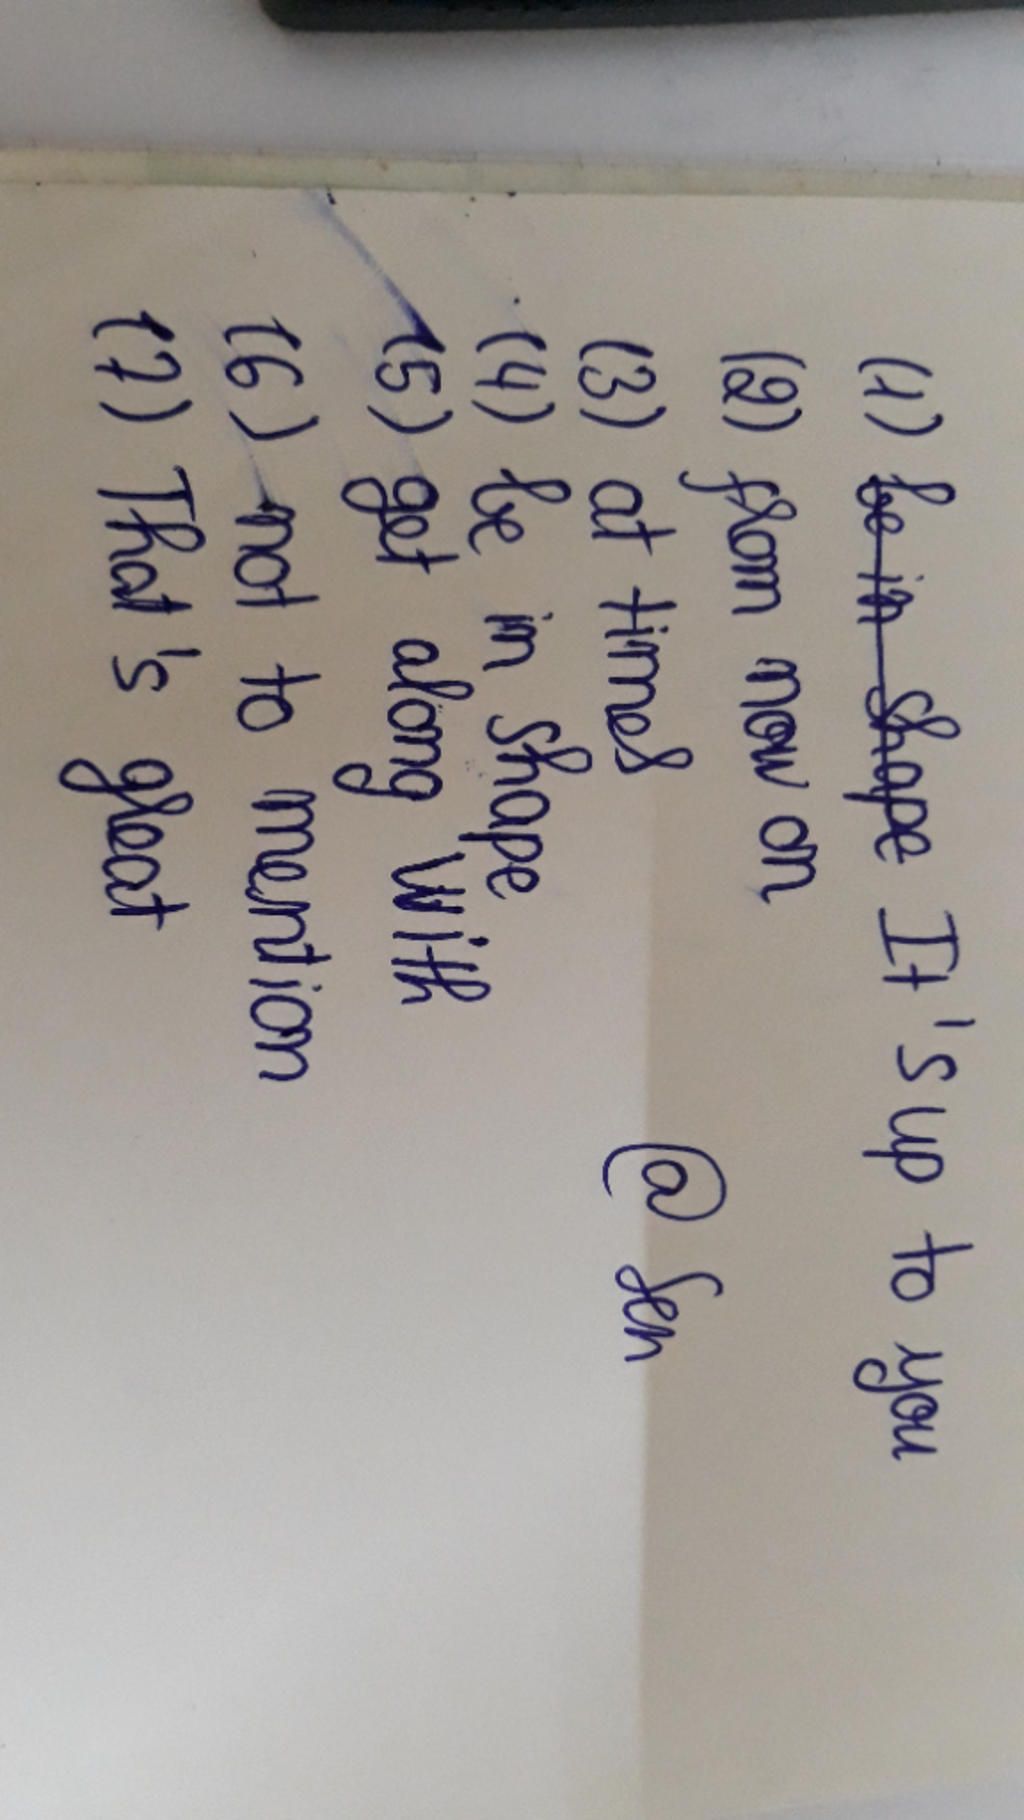 (1) be in shape It's up to you
(2) from now on
(3) at times
(4) be in shape
(5) get along with
(6) not to mention
(7) That's great
@ Sen